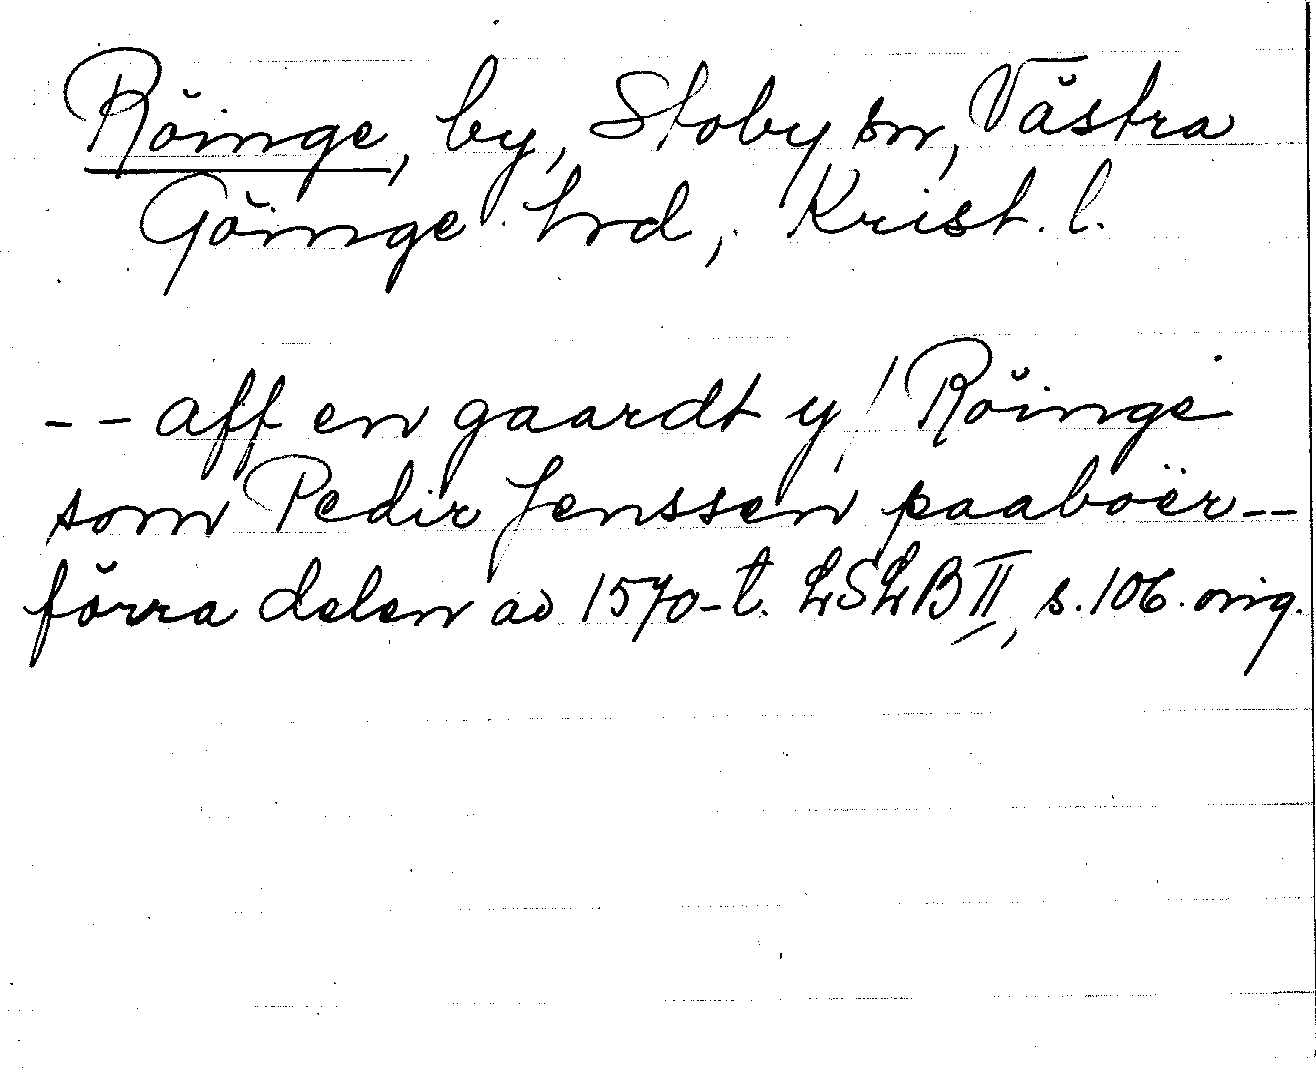 Röinge, by, Stoby sn, Västra
Göinge hrd, Krist. l.
-- aff en gaardt y / Röinge
som Pedir Jenssen paaboër --
förra delen av 1570-t. LSLB II, s. 106. orig.